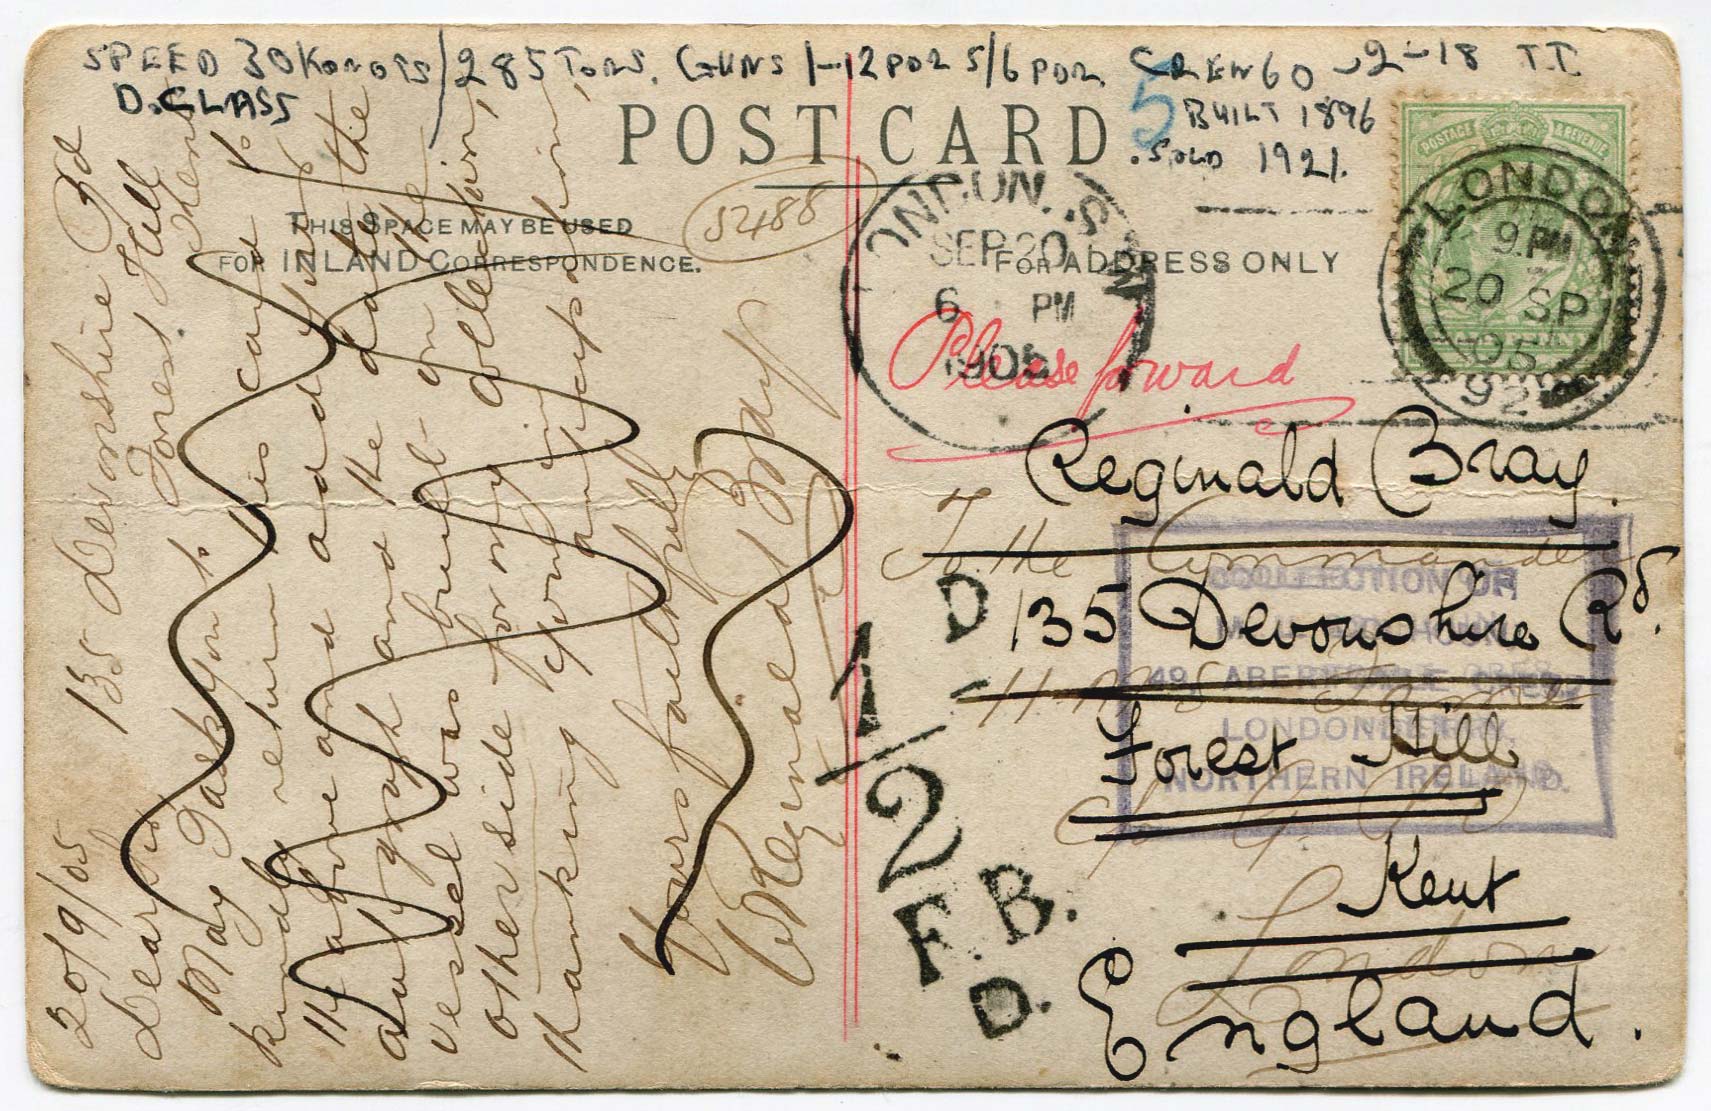 SPEED 30 KONOTS / 285 TONS. GUNS 1-12 PDR 5/6 PDR. CREW 60 - 2-18 T.T
D. CLASS
BUILT 1896
SOLD 1921.
5
POST CARD
THIS SPACE MAY BE USED
FOR INLAND CORRESPONDENCE.
FOR ADDRESS ONLY
52488
LONDON. S.W
SEP 20
6 PM
1905
POSTAGE & REVENUE
LONDON
9. PM
20 SP
05
92
Please forward
135 Devonshire Rd
Forest Hill
20/9/05
Dear Sir
May I ask you to
kindly return this card to
the above address
and the date
autograph and the
vessel was built on the
other side for my collection,
thanking you in anticipation,
Yours faithfully
W Reginald Bray
Reginald Bray.
To the Commander
135 Devonshire Rd.
H.M.S.
Forest Hill
c/o G.P.O
Kent
London
England.
COLLECTION OF
49, ABERFOYLE CRES.,
LONDONDERRY,
NORTHERN IRELAND.
1/2 D
F.B.
D.